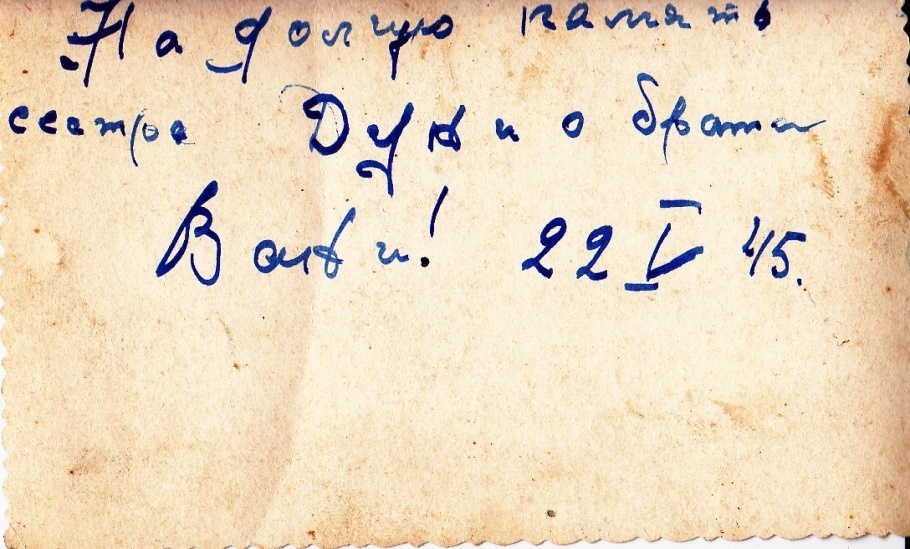 На долгую память
сестре Дуни о брата
Вани! 22 V 45.